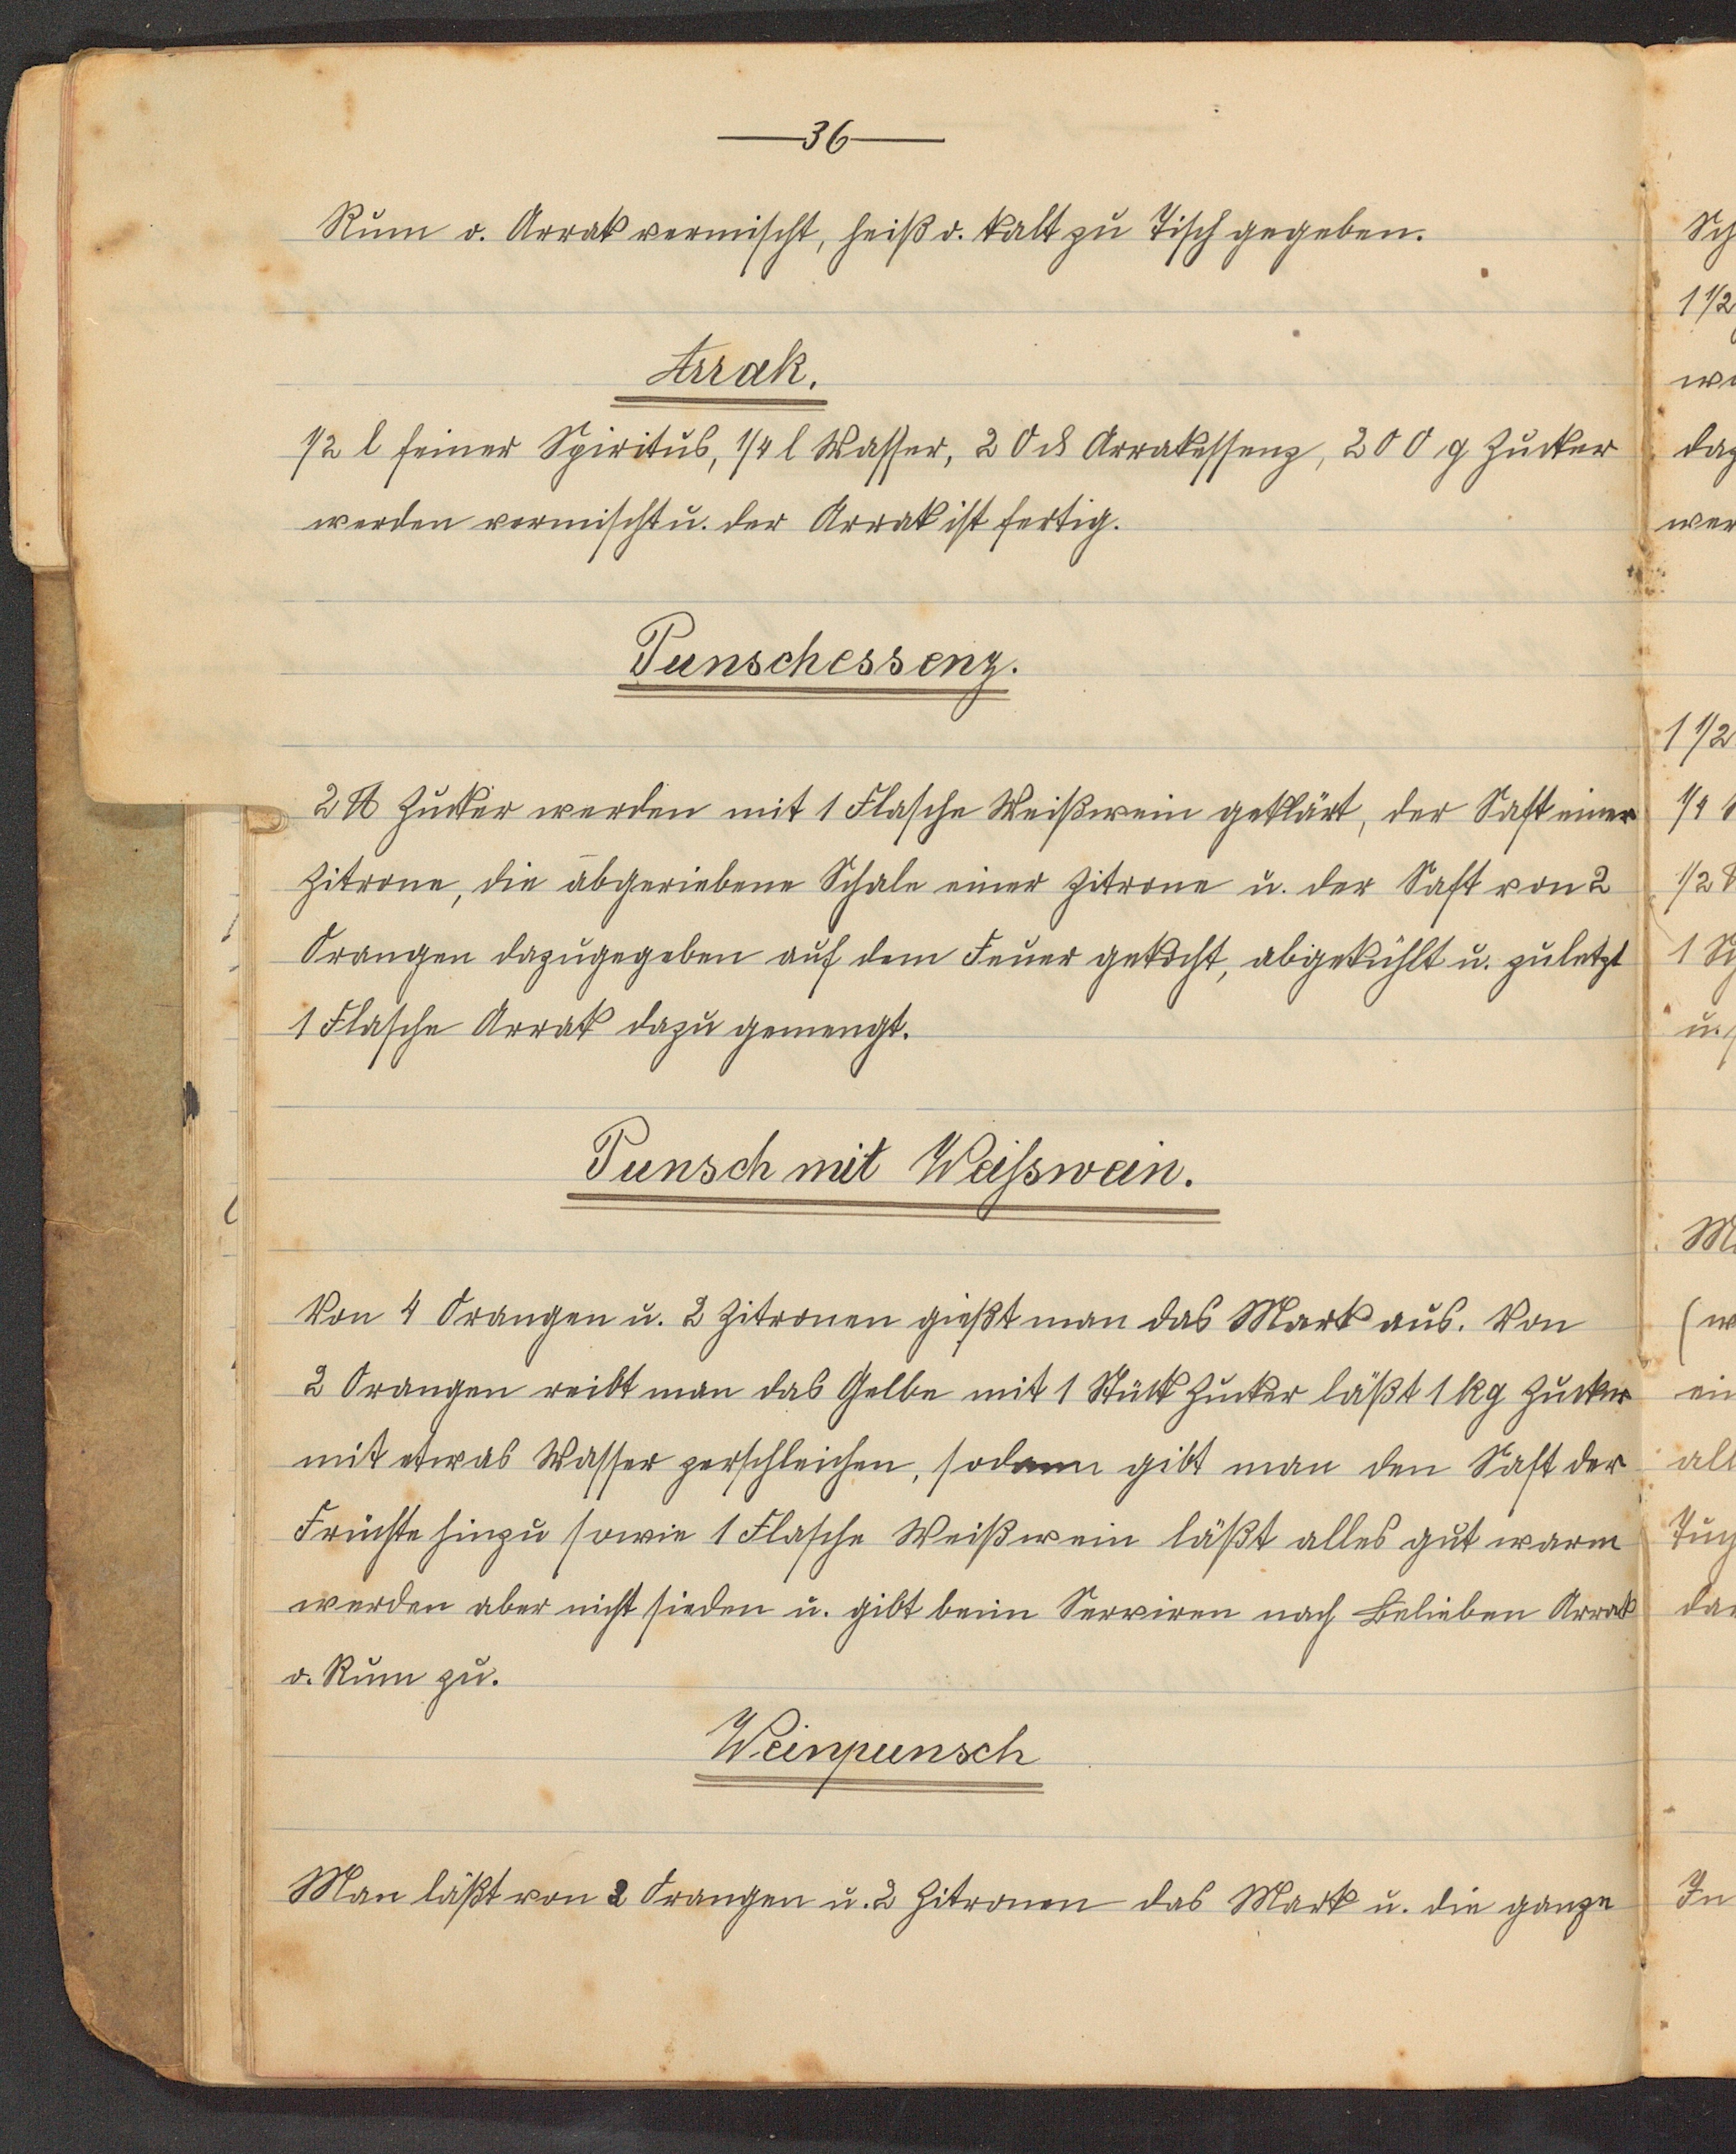 —36—
Rum o. Arrak vermischt, heiß o. kalt zu Tisch gegeben.
Arrak.
1/2 l feiner Spiritus, 1/4 l Wasser, 20 Arrakessenz, 200 g Zucker
werden vermischt u. der Arrak ist fertig.
Punschessenz.
2 ℔ Zucker werden mit 1 Flasche Weißwein geklärt, der Saft einer
Zitrone, die abgeriebene Schale einer Zitrone u. der Saft von 2
Orangen dazugegeben auf dem Feuer gekocht, abgekühlt u. zuletzt
1 Flasche Arrak dazu gemengt.
Punsch mit Weisswein.
Von 4 Orangen u. 2 Zitronen gießt man das Mark aus. Von
2 Orangen reibt man das Gelbe mit 1 Stück Zucker läßt 1 kg Zucker
mit etwas Wasser zerschleichen, sodann gibt man den Saft der
Früchte hinzu sowie 1 Flasche Weißwein läßt alles gut warm
werden aber nicht sieden u. gibt beim Serviren nach Belieben Arrak
o. Rum zu.
Weinpunsch
Man läßt von 2 Orangen u. 2 Zitronen das Mark u. die ganze
Sch
1 1/2
dag
wer
1 1/2
1/4
1/2
1
u.
(w
ein
all
In